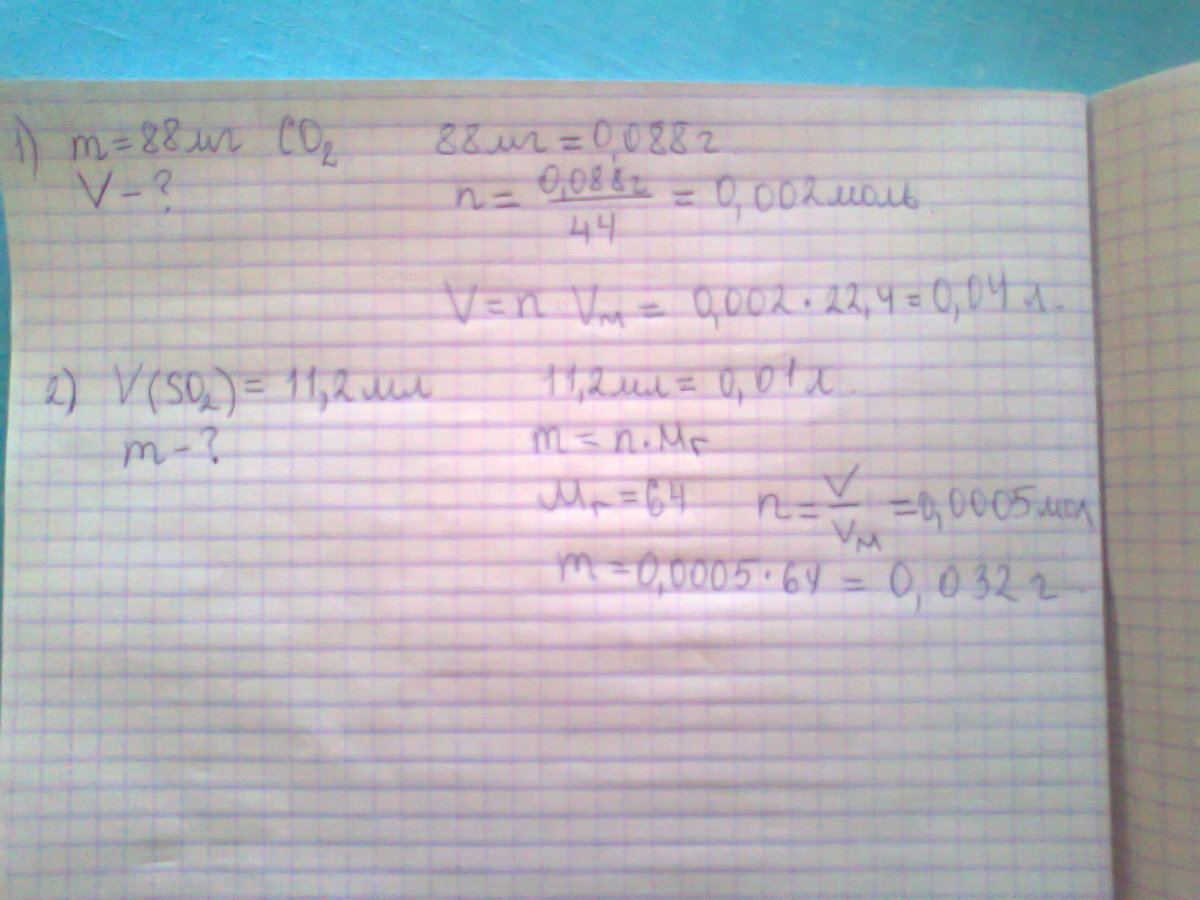 1) m = 88 мг CO₂ 88 мг = 0,088 г
V - ? n = 0,088г / 44 = 0,002 моль
V = n Vм = 0,002 · 22,4 = 0,04 л.
2) V(SO₂) = 11,2 мл 11,2 мл = 0,01 л.
m - ? m = n · Mr
Mr = 64 n = V / Vм = 0,0005 мол
m = 0,0005 · 64 = 0,032 г